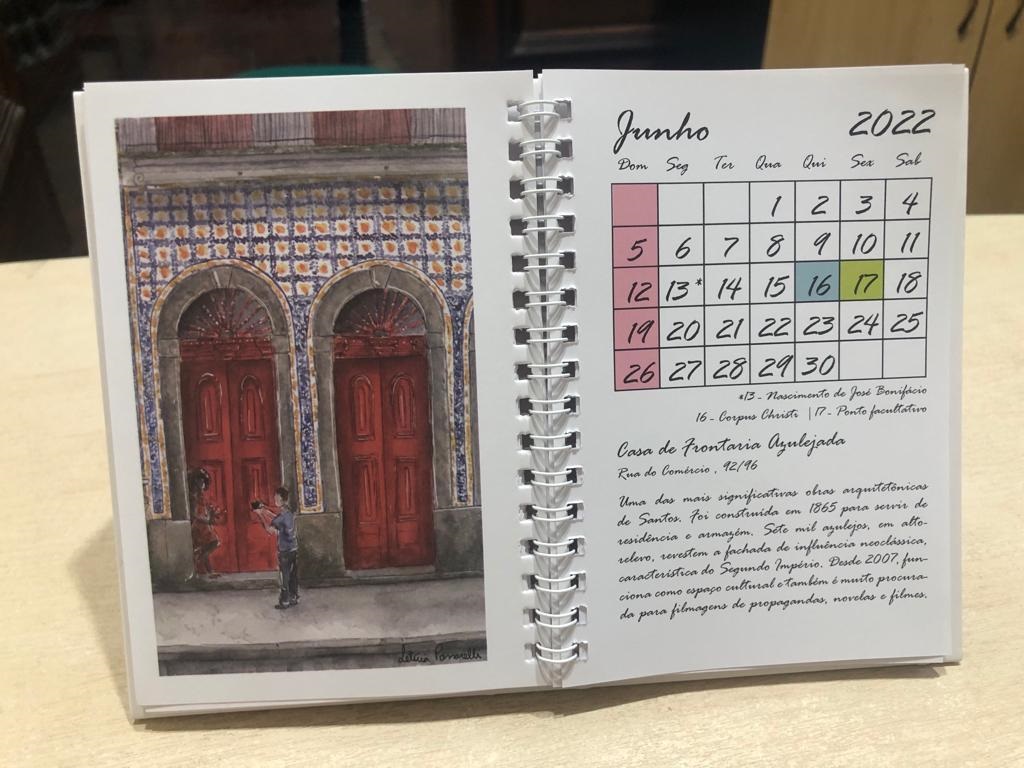 Junho 2022
Dom Seg Ter Qua Qui Sex Sab
1 2 3 4
5 6 7 8 9 10 11
12 13* 14 15 16 17 18
19 20 21 22 23 24 25
26 27 28 29 30
*13 - Nascimento de José Bonifácio
16 - Corpus Christi | 17 - Ponto facultativo
Casa de Frontaria Azulejada
Rua do Comércio, 92/96
Uma das mais significativas obras arquitetônicas
de Santos. Foi construída em 1865 para servir de
residência e armazém. Sete mil azulejos, em alto-
relevo, revestem a fachada de influência neoclássica,
característica do Segundo Império. Desde 2007, fun-
ciona como espaço cultural e também é muito procura-
da para filmagens de propagandas, novelas e filmes.